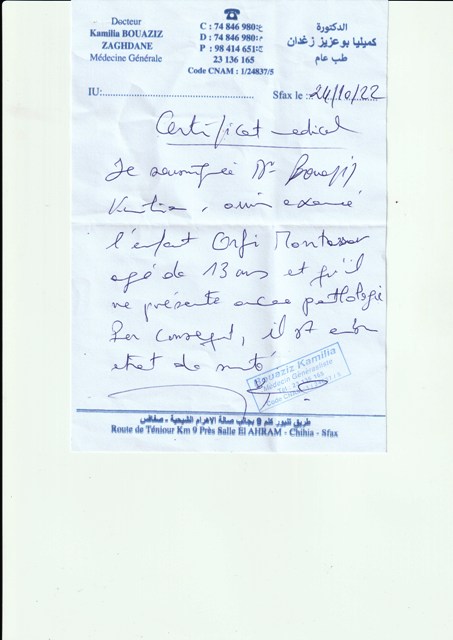 Docteur
Kamilia BOUAZIZ
ZAGHDANE
Médecine Générale
C : 74 846 980 :ع
D : 74 846 980 :م
P : 98 414 651 :ج
23 136 165
Code CNAM : 1/24837/5
الدكتورة
كميليا بوعزيز زغدان
طب عام
IU:
Sfax le : 24/10/22
Certificat medical
Je soussignée Dr Bouaziz
Kamilia, avoir examiné
l'enfant Orfi Montassar
agé de 13 ans et qu'il
ne présente aucune pathologie
Par conséquent, il est en bon
etat de santé
Bouaziz Kamilia
Médecin Généraliste
Code CNAM
طريق تنيور كلم 9 بجانب صالة الاهرام الشيحية - صفاقس
Route de Téniour Km 9 Près Salle El AHRAM - Chihia - Sfax